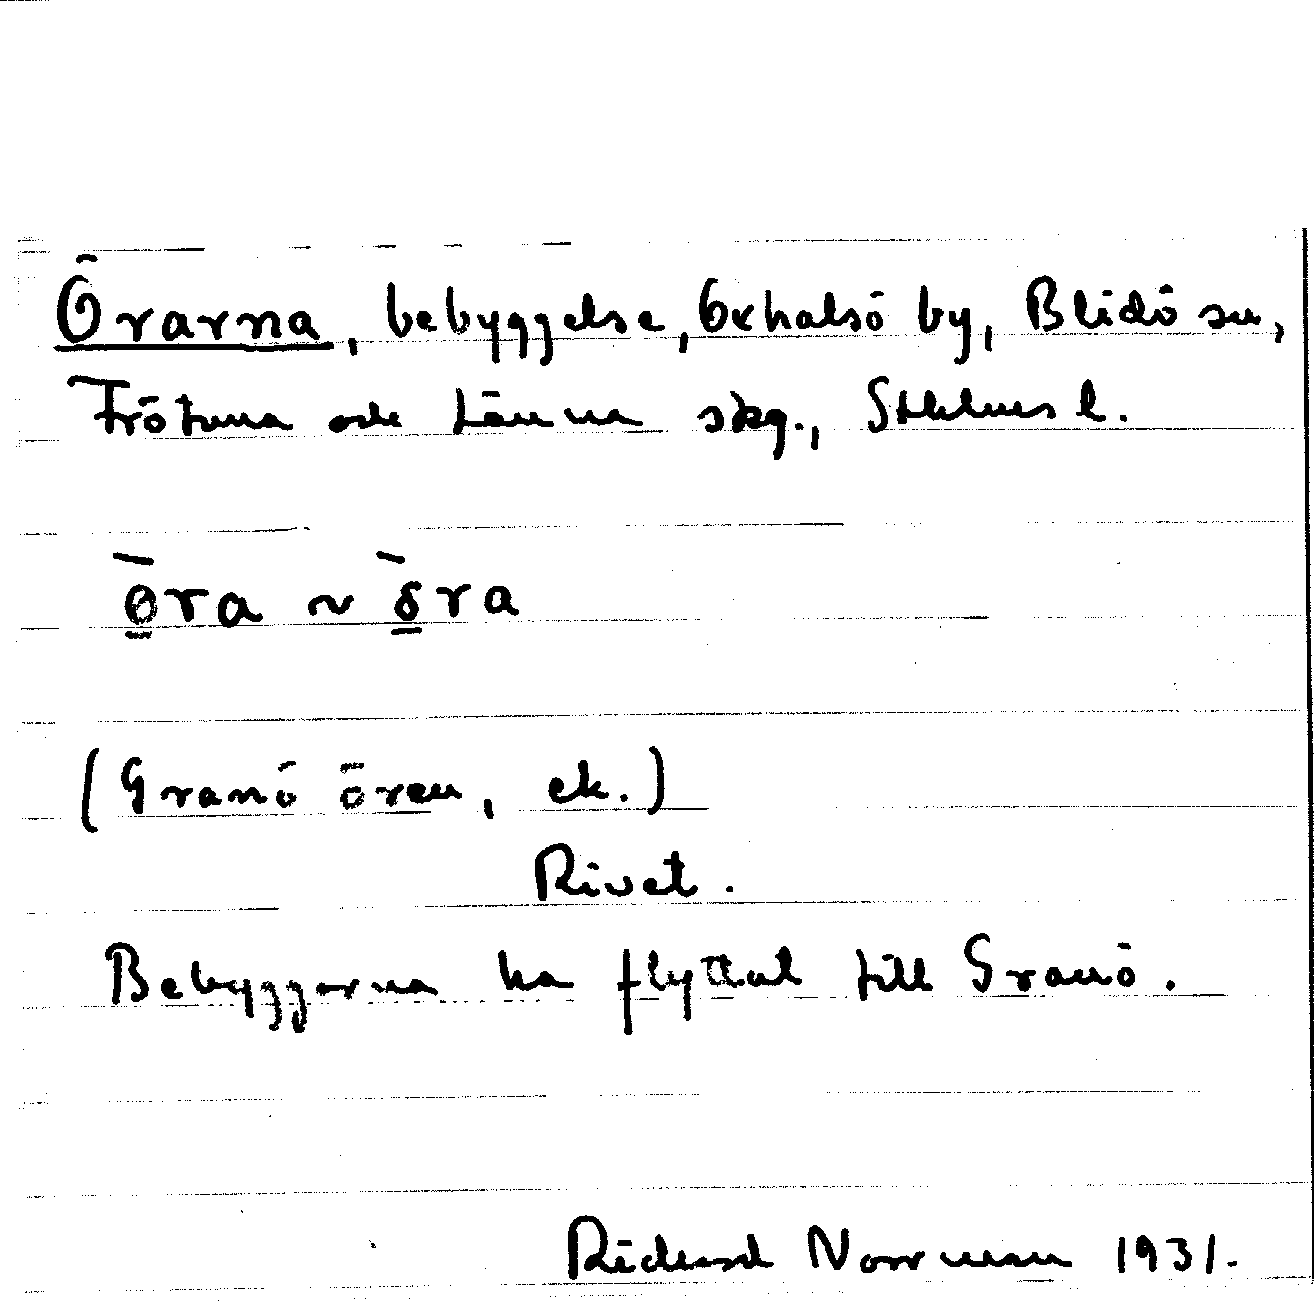 Örarna, bebyggelse, Oxhalsö by, Blidö sn,
Frötuna och Länna skg., Sthlms l.
ø̱̀ra ~ ò̱ra
(Granö ören, ek.)
Rivet.
Bebyggarna ha flyttat till Granö.
Rickard Norrman 1931.